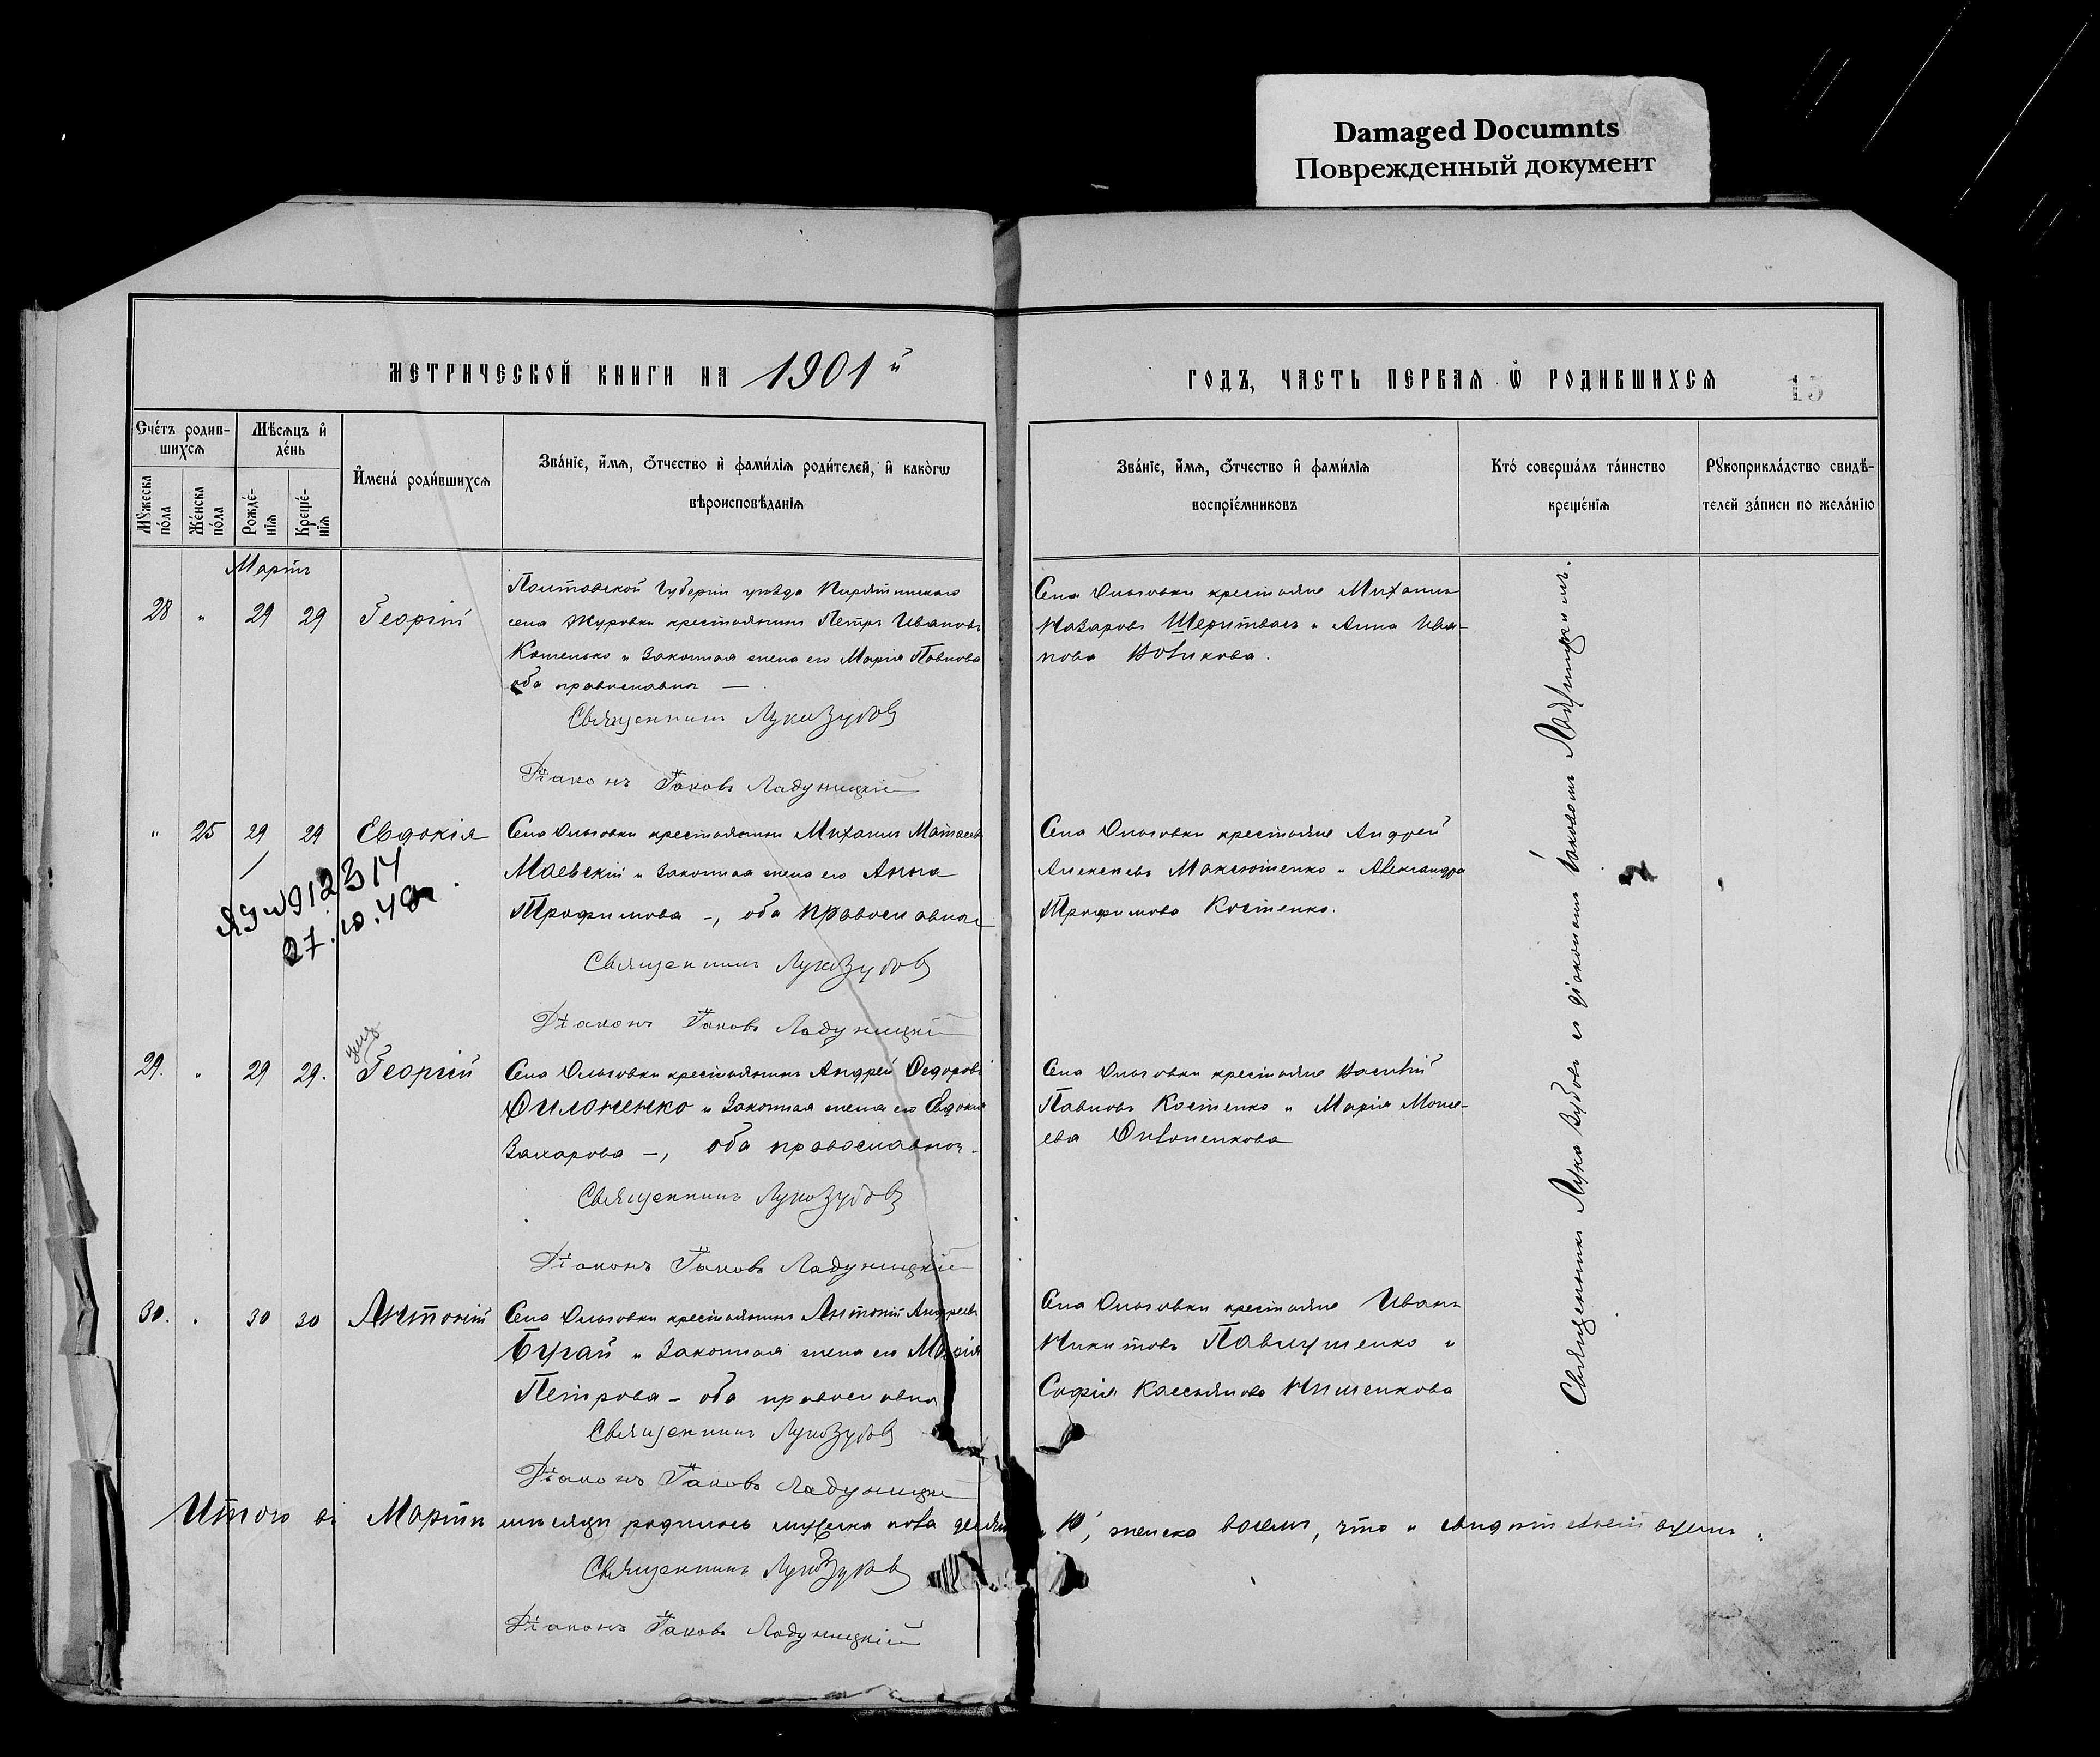 Damaged Documnts
Поврежденный документ
МЕТРИЧЕСКОЙ КНИГИ НА 1901 й
ГОДЪ, ЧАСТЬ ПЕРВАЯ Ѡ РОДИВШИХСЯ
15
Счетъ родив-
шихся
Мѣсяцъ и
день
Мужеска
пола
Женска
пола
Рожде-
нія
Креще-
нія
Имена родившихся
Званіе, имя, отчество и фамилія родителей, и какогѡ
вѣроисповѣданія
Званіе, имя, отчество и фамилія
воспріемниковъ
Кто совершалъ таинство
крещенія
Рукоприкладство свидѣ-
телей записи по желанію
Мартъ
28 " 29 29 Георгій
Полтавской Губерніи уѣзда Пирятинскаго
села Журовки крестьянинъ Петръ Ивановъ
Кошенько и законная жена его Марія Павлова
оба православны —.
Священникъ Лука Зубовъ
Діаконъ Іаковъ Ладунницкій
Села Ольговки крестьяне Михаилъ
Назаровъ и Анна Ива-
нова Новикова.
" 25 29 29 Евдокія
Села Ольговки крестьянинъ Михаилъ Матѳеевъ
Маевскій и законная жена его Анна
Трофимова –, оба православные
Священникъ Лука Зубовъ
Діаконъ Іаковъ Ладунницкій
Села Ольговки крестьяне Андрей
Алексѣевъ Максютенко и Александра
Трофимова Костенко.
912314
27.10.49г.
29. " 29 29. Георгій
Села Ольговки крестьянинъ Андрей Ѳедоровъ
Филоненко и законная жена его Евдокія
Захарова –, оба православные.
Священникъ Лука Зубовъ
Діаконъ Іаковъ Ладунницкій
Села Ольговки крестьяне Василій
Павловъ Костенко и Марія Моисе-
ева
30. " 30 30 Антоній
Села Ольговки крестьянинъ Антоній Андреевъ
Бугай и законная жена его Марія
Петрова – оба православны
Священникъ Лука Зубовъ
Діаконъ Іаковъ Ладунницкій
Села Ольговки крестьяне Иванъ
Никитовъ Павлушенко и
Софія Кассьянова
Священникъ Лука Зубовъ съ діакономъ Іаковомъ Ладунницкимъ.
Итого въ Мартѣ мѣсяцѣ родилось мужеска пола десять 10, женска восемь, что и свидѣтельствуемъ.
Священникъ Лука Зубовъ
Діаконъ Іаковъ Ладунницкій